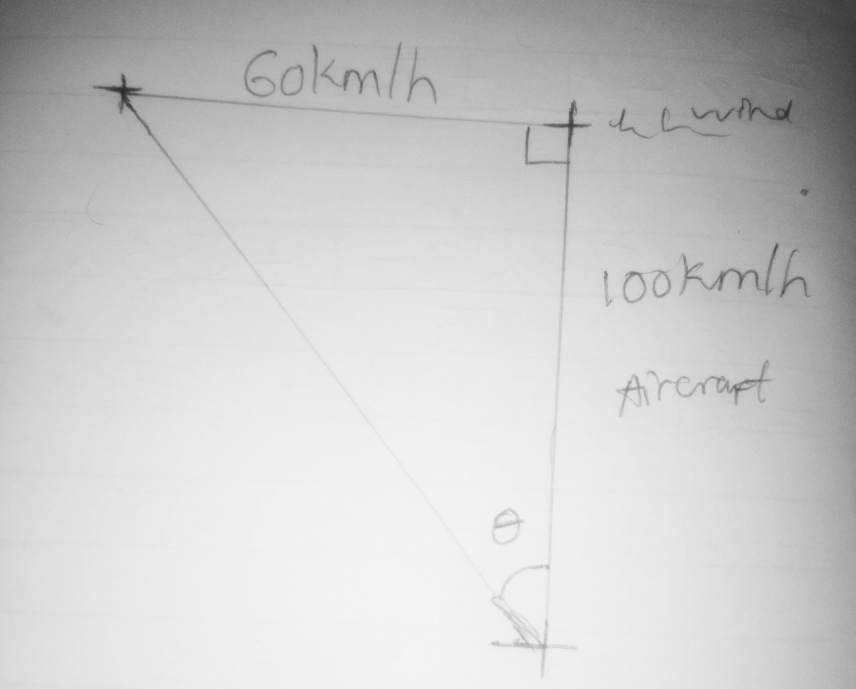 60km/h
wind
100km/h
Aircraft
θ